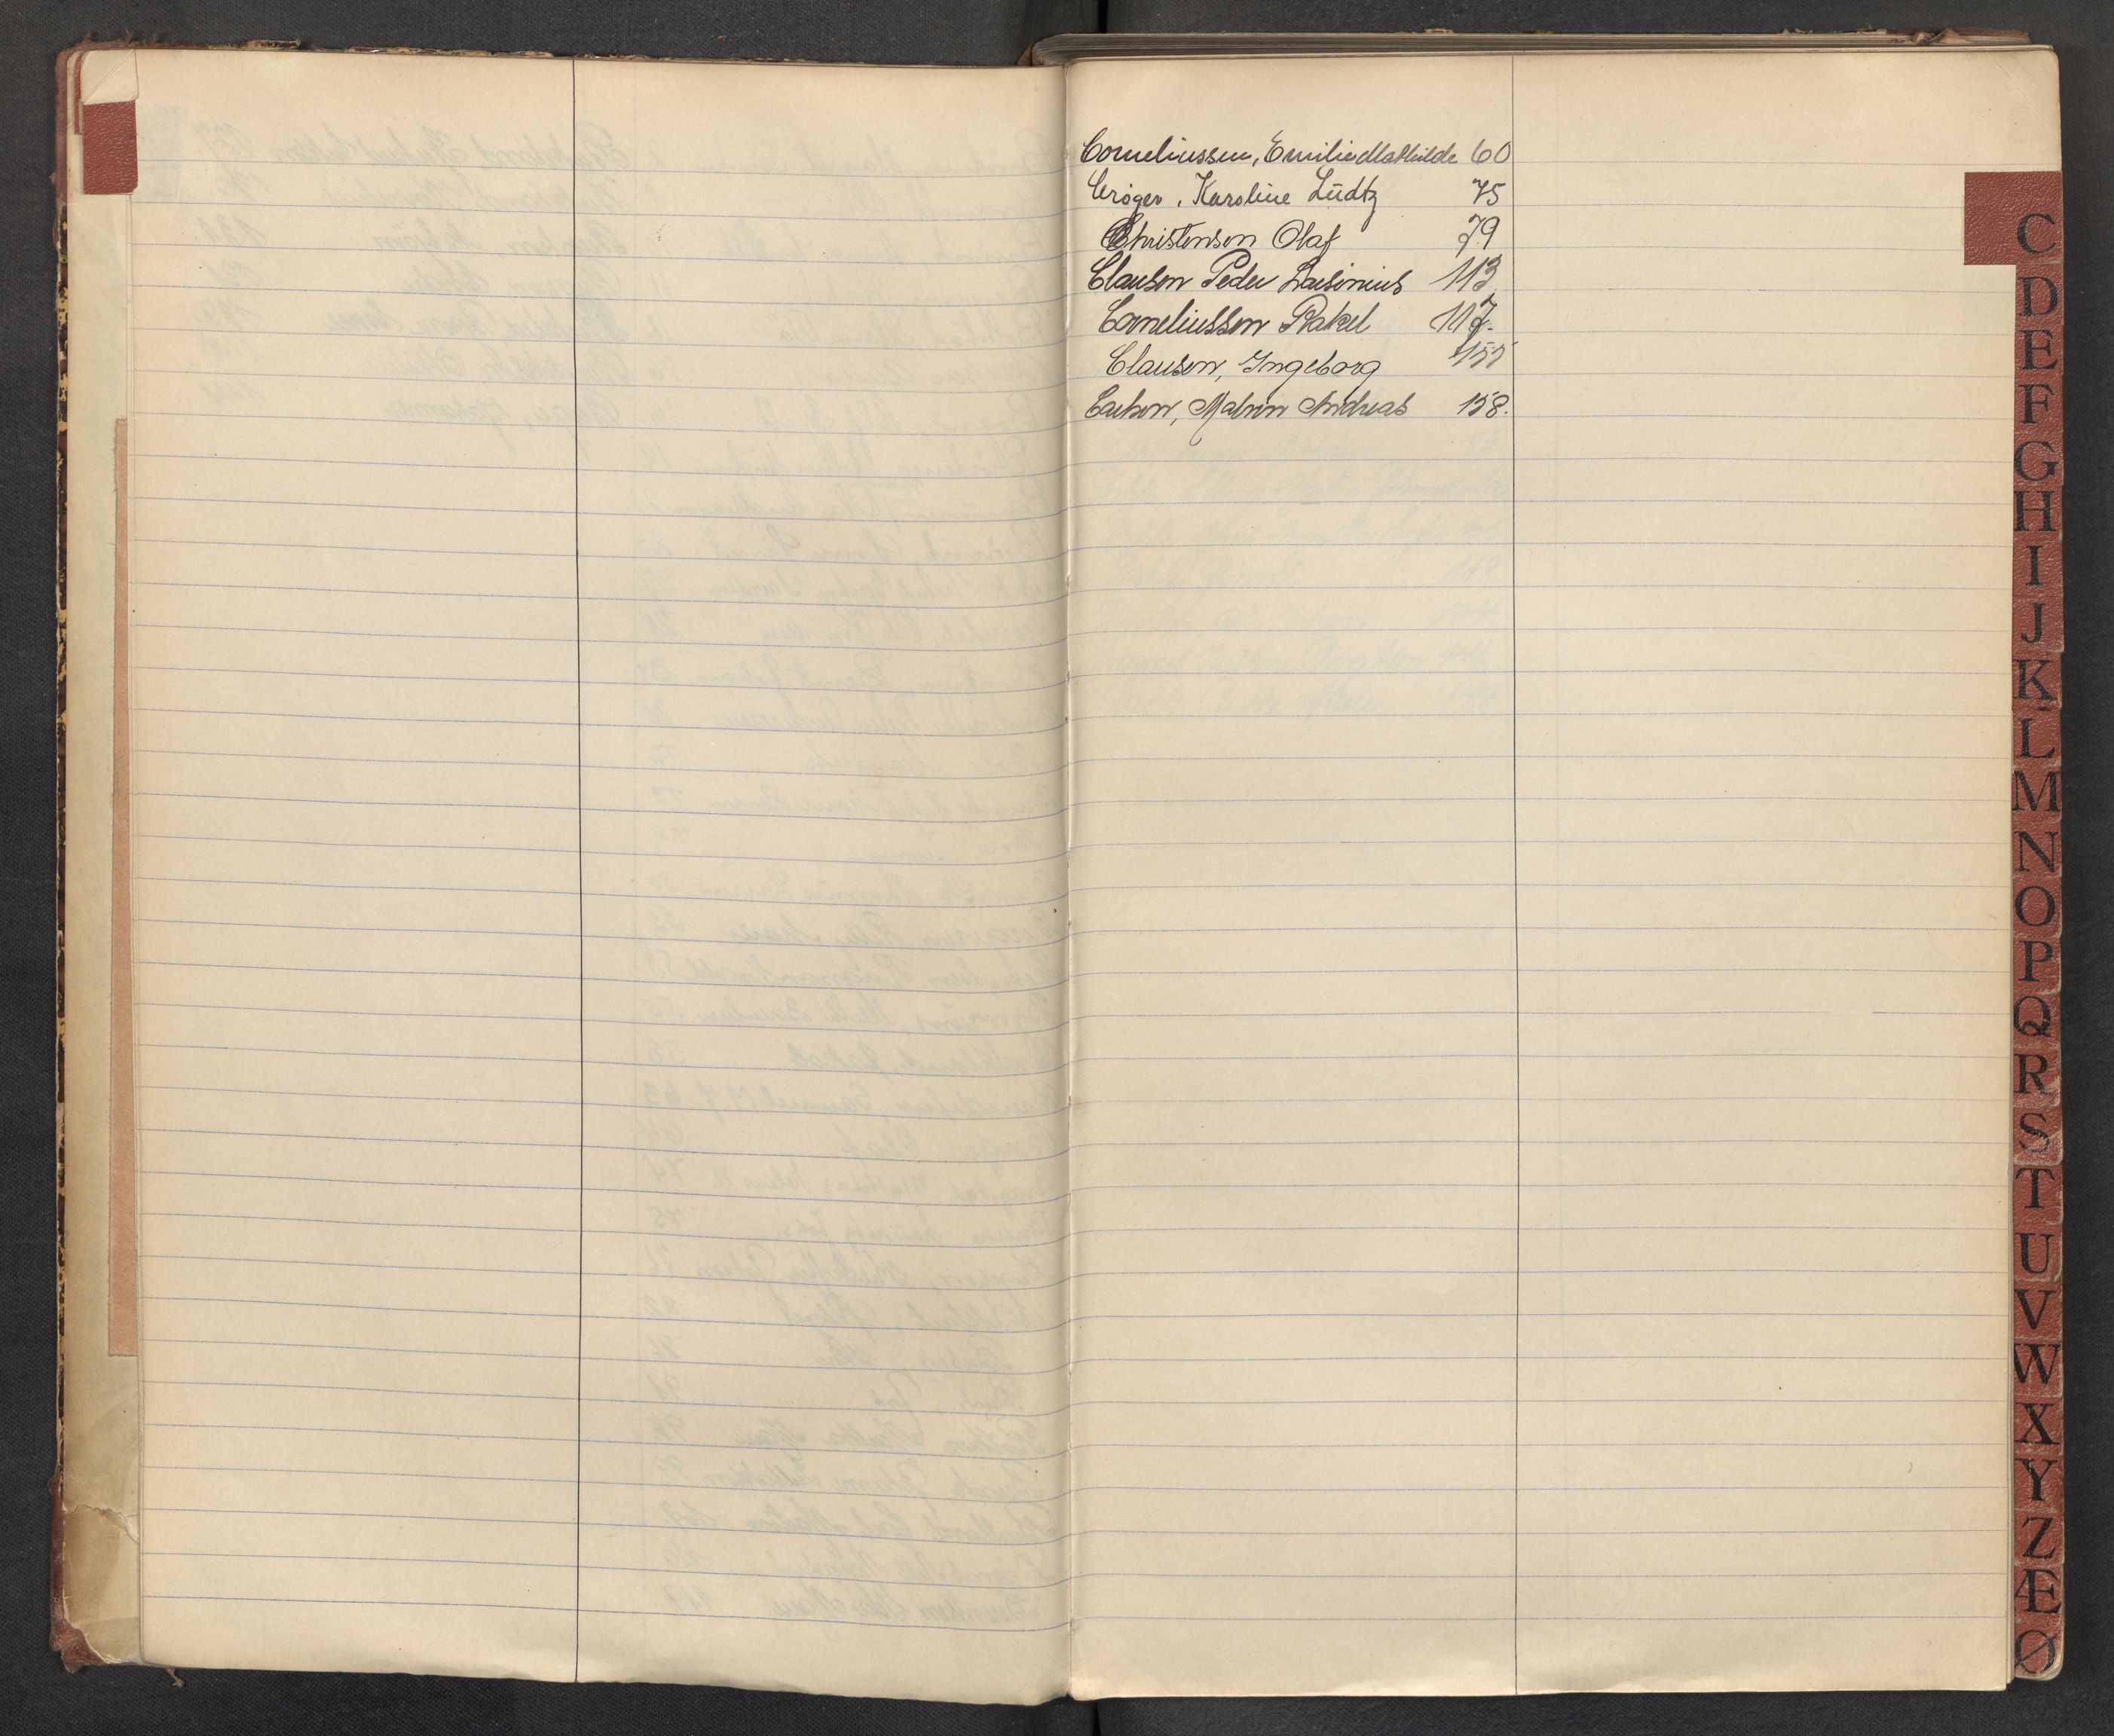 Corneliussen, Emilie Mathilde 60
Crøger, Karoline Lüdtz 75
Christensen Olaf 79
Clausen Peder 113
Corneliussen Rakel 117.
Clausen, Ingeborg 155
Carlsen, Malvin Andreas 158.
C
D
E
F
G
H
I
J
K
L
M
N
O
P
Q
R
S
T
U
V
W
X
Y
Z
Æ
Ø